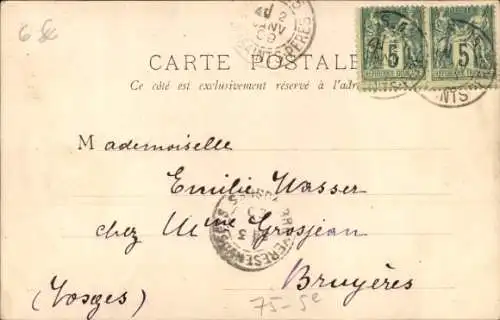 6 5e
2
JANV
CARTE POSTALE
5 5
Ce côté est exclusivement réservé à l'adr
Mademoiselle
Emilie Wasser
chez Mme Grosjean
Bruyères
(Vosges)
75-5e